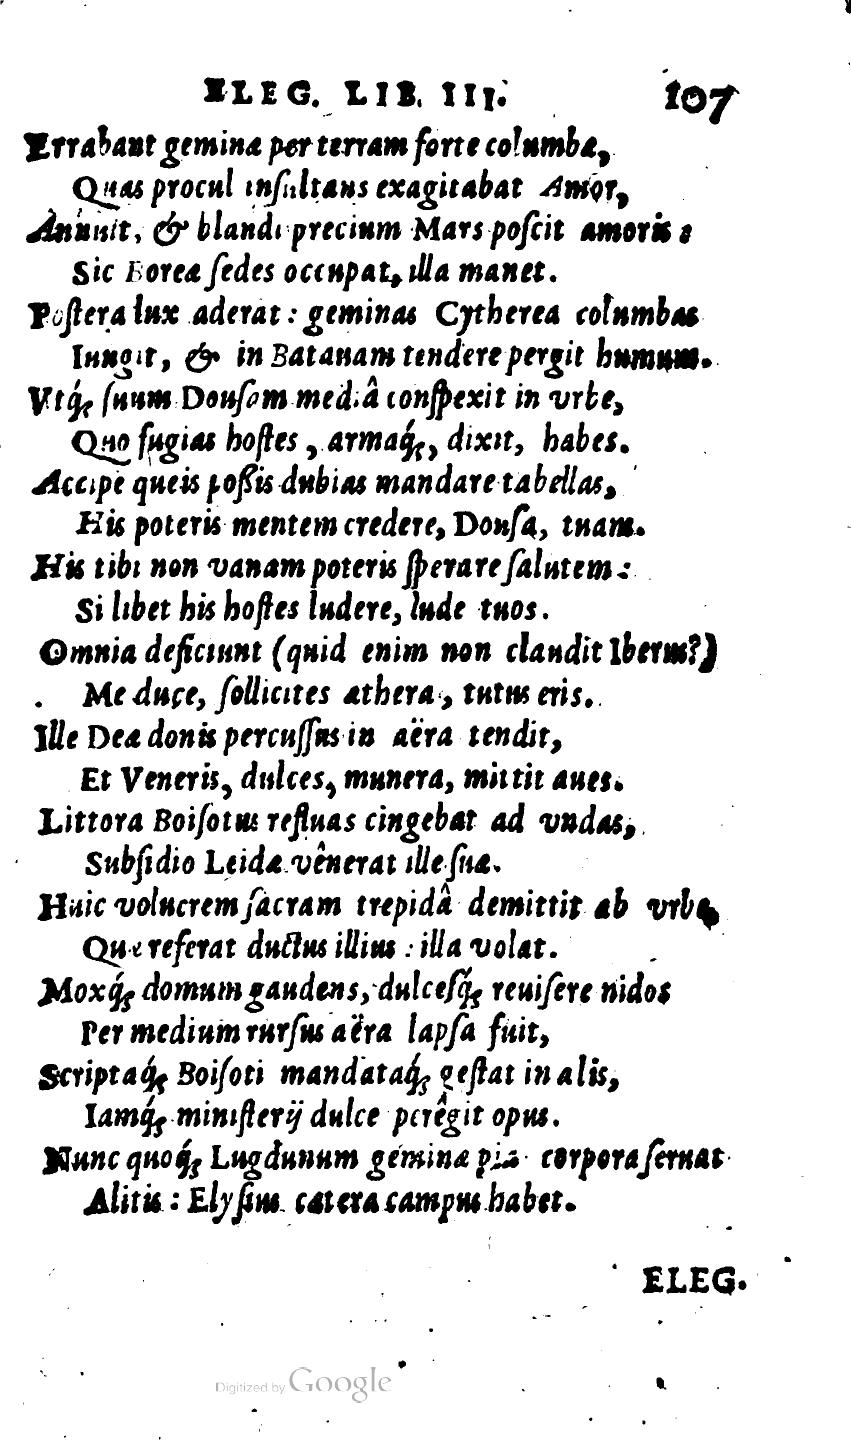 ELEG. LIB. III. 107
Errabant geminæ per terram forte columbæ,
Quas procul insultans exagitabat Amor,
Annuit, & blandi precium Mars poscit amoris:
Sic Boreæ sedes occupat, illa manet.
Postera lux aderat: geminas Cytherea columbas
Iungit, & in Batauam tendere pergit humum.
Vtq́; suum Dousam mediâ conspexit in vrbe,
Quo fugias hostes, armaq́;, dixit, habes.
Accipe queis possis dubias mandare tabellas,
His poteris mentem credere, Dousa, tuam.
His tibi non vanam poteris sperare salutem:
Si libet his hostes ludere, lude tuos.
Omnia deficiunt (quid enim non claudit Iberus?)
Me duce, sollicites æthera, tutus eris.
Ille Deæ donis percussus in aëra tendit,
Et Veneris, dulces, munera, mittit aues.
Littora Boisotus refluas cingebat ad vndas,
Subsidio Leidæ vênerat ille suæ.
Huic volucrem sacram trepidâ demittit ab vrbe,
Quæ referat ductus illius: illa volat.
Moxq́; domum gaudens, dulcesq́; reuisere nidos
Per medium rursus aëra lapsa fuit,
Scriptaq́; Boisoti mandataq́; gestat in alis,
Iamq́; ministerij dulce perêgit opus.
Nunc quoq́; Lugdunum gemina pia corpora seruat
Alitis: Elysius cætera campus habet.
ELEG.
Digitized by Google